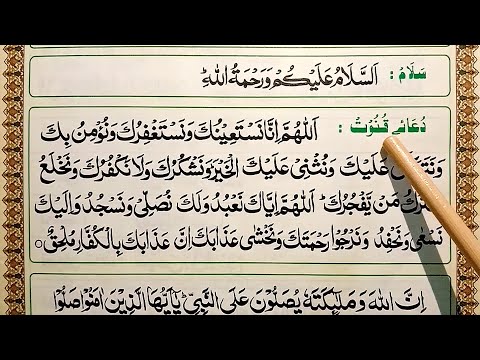 سَلَامْ : اَلسَّلَامُ عَلَيْكُمْ وَرَحْمَةُ اللهِ
دُعَائے قُنُوْتْ : اَللّٰهُمَّ اِنَّا نَسْتَعِيْنُكَ وَنَسْتَغْفِرُكَ وَنُؤْمِنُ بِكَ
عَلَيْكَ وَنُثْنِیْ عَلَيْكَ الْخَيْرَ وَنَشْكُرُكَ وَلَا نَكْفُرُكَ وَنَخْلَعُ
مَنْ يَّفْجُرُكَ اَللّٰهُمَّ اِيَّاكَ نَعْبُدُ وَلَكَ نُصَلِّیْ وَنَسْجُدُ وَاِلَيْكَ
نَسْعٰی وَنَحْفِدُ وَنَرْجُوْا رَحْمَتَكَ وَنَخْشٰی عَذَابَكَ اِنَّ عَذَابَكَ بِالْكُفَّارِ مُلْحِقٌ
اِنَّ اللهَ وَمَلٰٓئِكَتَهٗ يُصَلُّوْنَ عَلَی النَّبِیِّ يٰٓاَيُّهَا الَّذِيْنَ اٰمَنُوْا صَلُّوْا